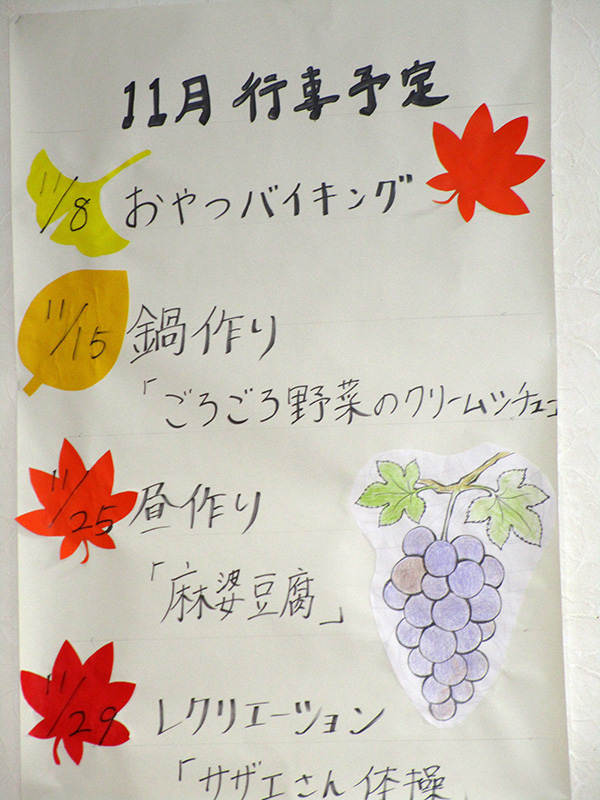 11月 行事予定
11/8 おやつバイキング
11/15 鍋作り
「ごろごろ野菜のクリームシチュー
11/25 昼作り
「麻婆豆腐」
11/29 レクリエーション
「サザエさん体操